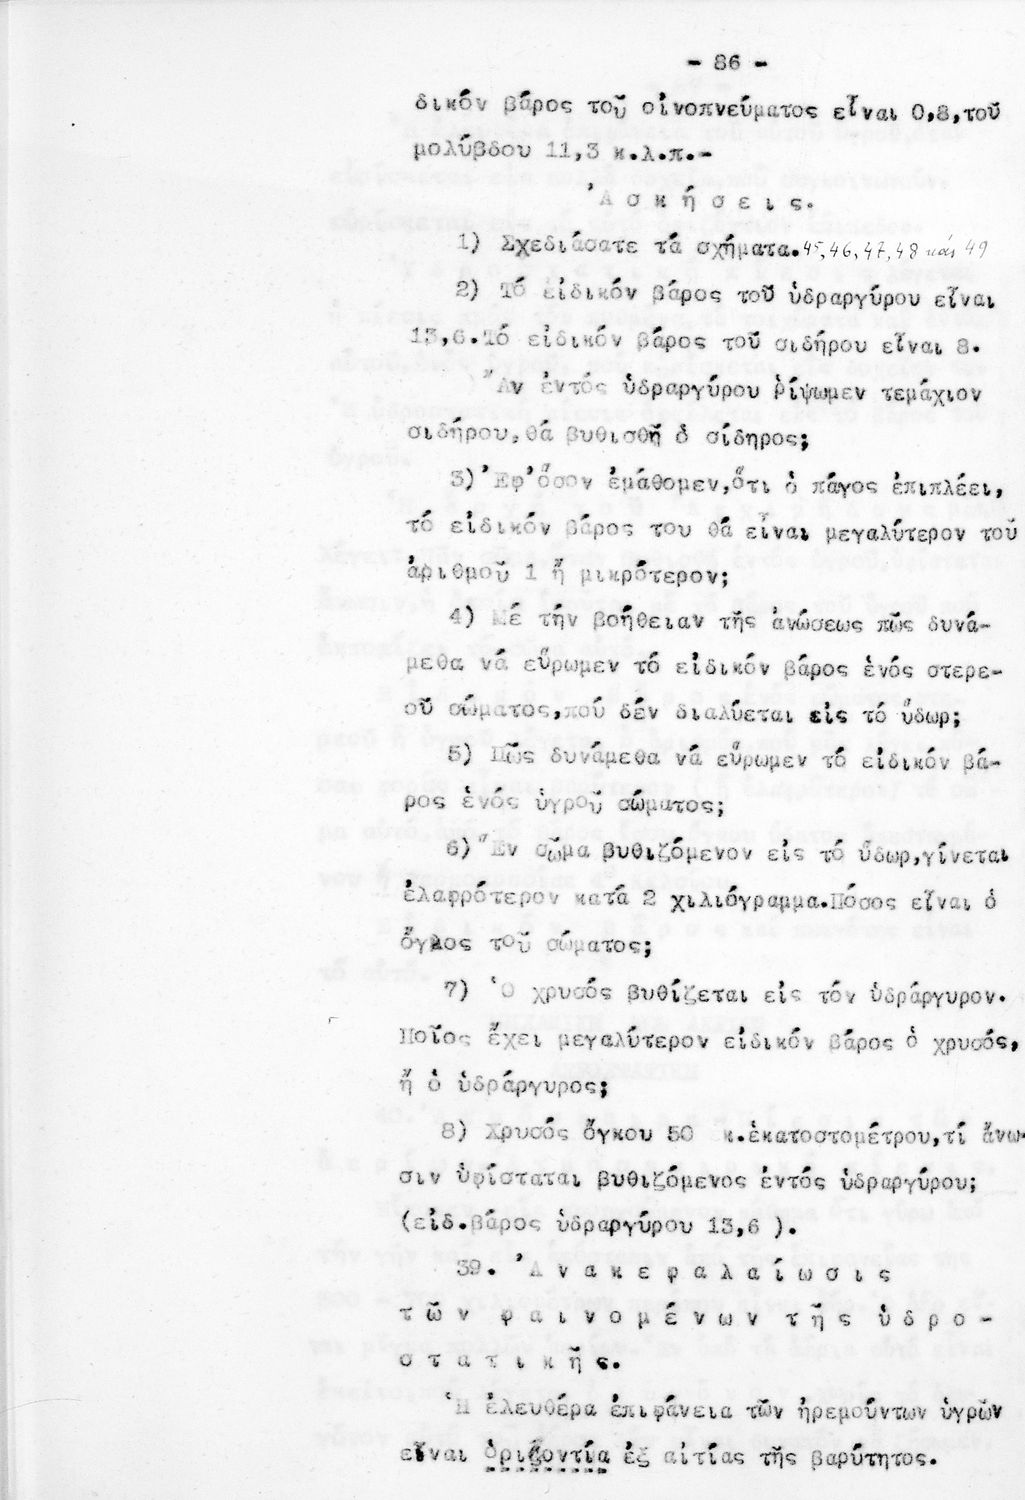 - 86 -
δικόν βάρος τοῦ οἰνοπνεύματος εἶναι 0,8,τοῦ
μολύβδου 11,3 κ.λ.π.-
Ἀ σ κ ή σ ε ι ς.
1) Σχεδιάσατε τά σχήματα.45,46,47,48 καί 49
2) Τό εἰδικόν βάρος τοῦ ὑδραργύρου εἶναι
13,6.Τό εἰδικόν βάρος τοῦ σιδήρου εἶναι 8.
Ἄν ἐντός ὑδραργύρου ρίψωμεν τεμάχιον
σιδήρου,θά βυθισθῇ ὁ σίδηρος;
3)Ἐφ'ὅσον ἐμάθομεν,ὅτι ὁ πάγος ἐπιπλέει,
τό εἰδικόν βάρος του θά εἶναι μεγαλύτερον τοῦ
ἀριθμοῦ 1 ἤ μικρότερον;
4) Μέ τήν βοήθειαν τῆς ἀνώσεως πῶς δυνά-
μεθα νά εὕρωμεν τό εἰδικόν βάρος ἑνός στερε-
οῦ σώματος,πού δέν διαλύεται εἰς τό ὕδωρ;
5) Πῶς δυνάμεθα νά εὕρωμεν τό εἰδικόν βά-
ρος ἑνός ὑγροῦ σώματος;
6) Ἕν σῶμα βυθιζόμενον εἰς τό ὕδωρ,γίνεται
ἐλαφρότερον κατά 2 χιλιόγραμμα.Πόσος εἶναι ὁ
ὄγκος τοῦ σώματος;
7) Ὁ χρυσός βυθίζεται εἰς τόν ὑδράργυρον.
Ποῖος ἔχει μεγαλύτερον εἰδικόν βάρος ὁ χρυσός,
ἤ ὁ ὑδράργυρος;
8) Χρυσός ὄγκου 50 κ.ἑκατοστομέτρου,τί ἄνω-
σιν ὑφίσταται βυθιζόμενος ἐντός ὑδραργύρου;
(εἰδ.βάρος ὑδραργύρου 13,6 ).
39. Ἀ ν α κ ε φ α λ α ί ω σ ι ς
τ ῶ ν φ α ι ν ο μ έ ν ω ν τ ῆ ς ὑ δ ρ ο -
σ τ α τ ι κ ῆ ς.
Ἡ ἐλευθέρα ἐπιφάνεια τῶν ἠρεμούντων ὑγρῶν
εἶναι ὁριζοντία ἐξ αἰτίας τῆς βαρύτητος.